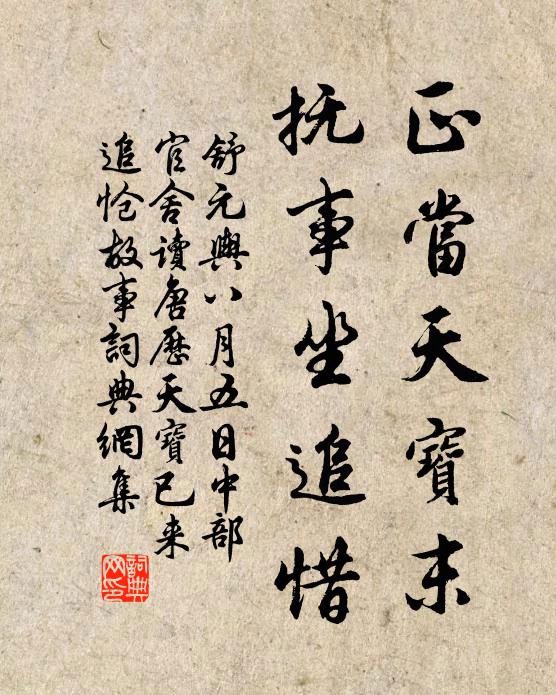 正當天寶末
抚事坐追惜
舒元輿八月五日中部
官舍讀唐歷天寶已来
追怆故事詞典網集
詞典網印